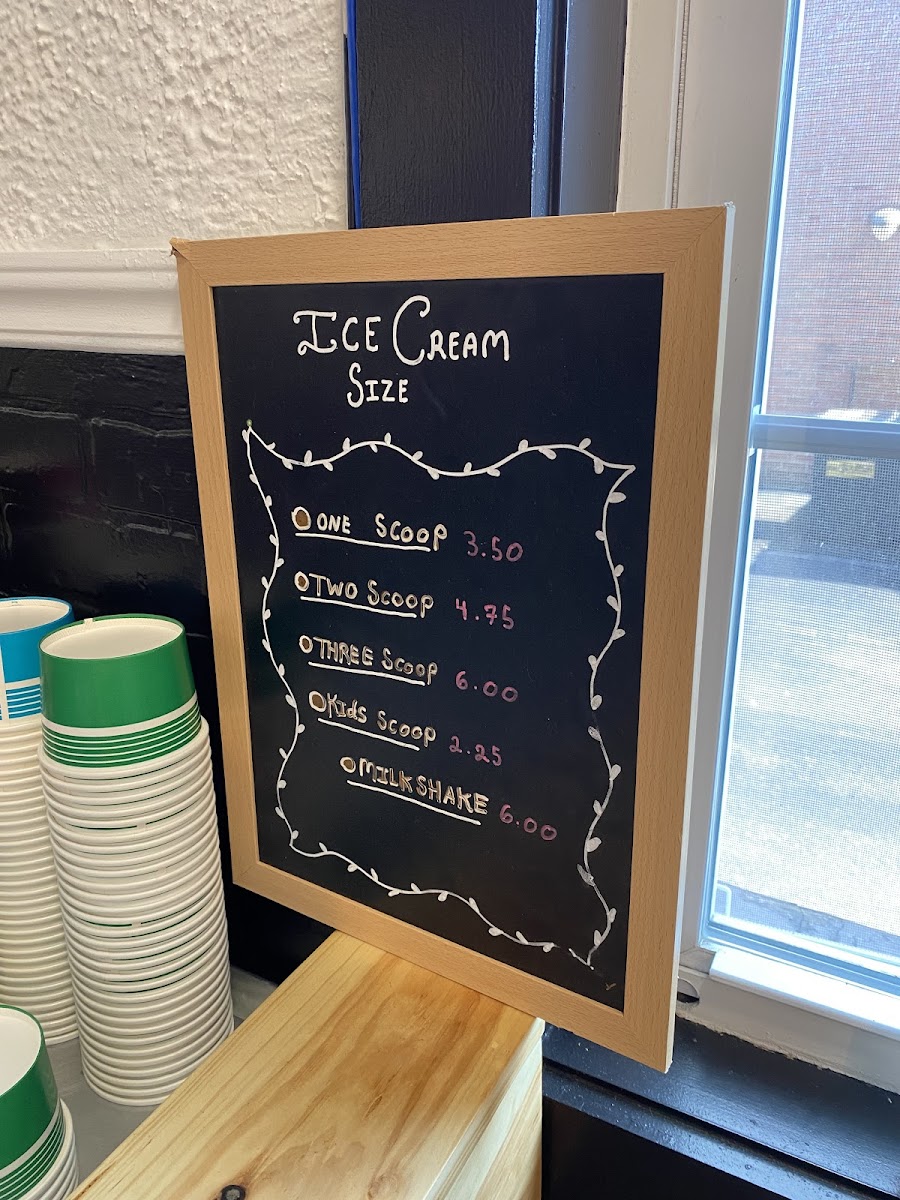 ICE CREAM
SIZE
ONE SCOOP 3.50
TWO SCOOP 4.75
THREE SCOOP 6.00
Kids Scoop 2.25
MILKSHAKE 6.00